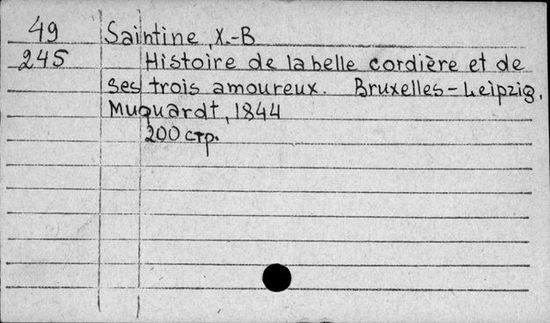 49 Saintine, X.-B
245 Histoire de la belle cordière et de
ses trois amoureux. Bruxelles-Leipzig,
Muquardt, 1844
200 стр.